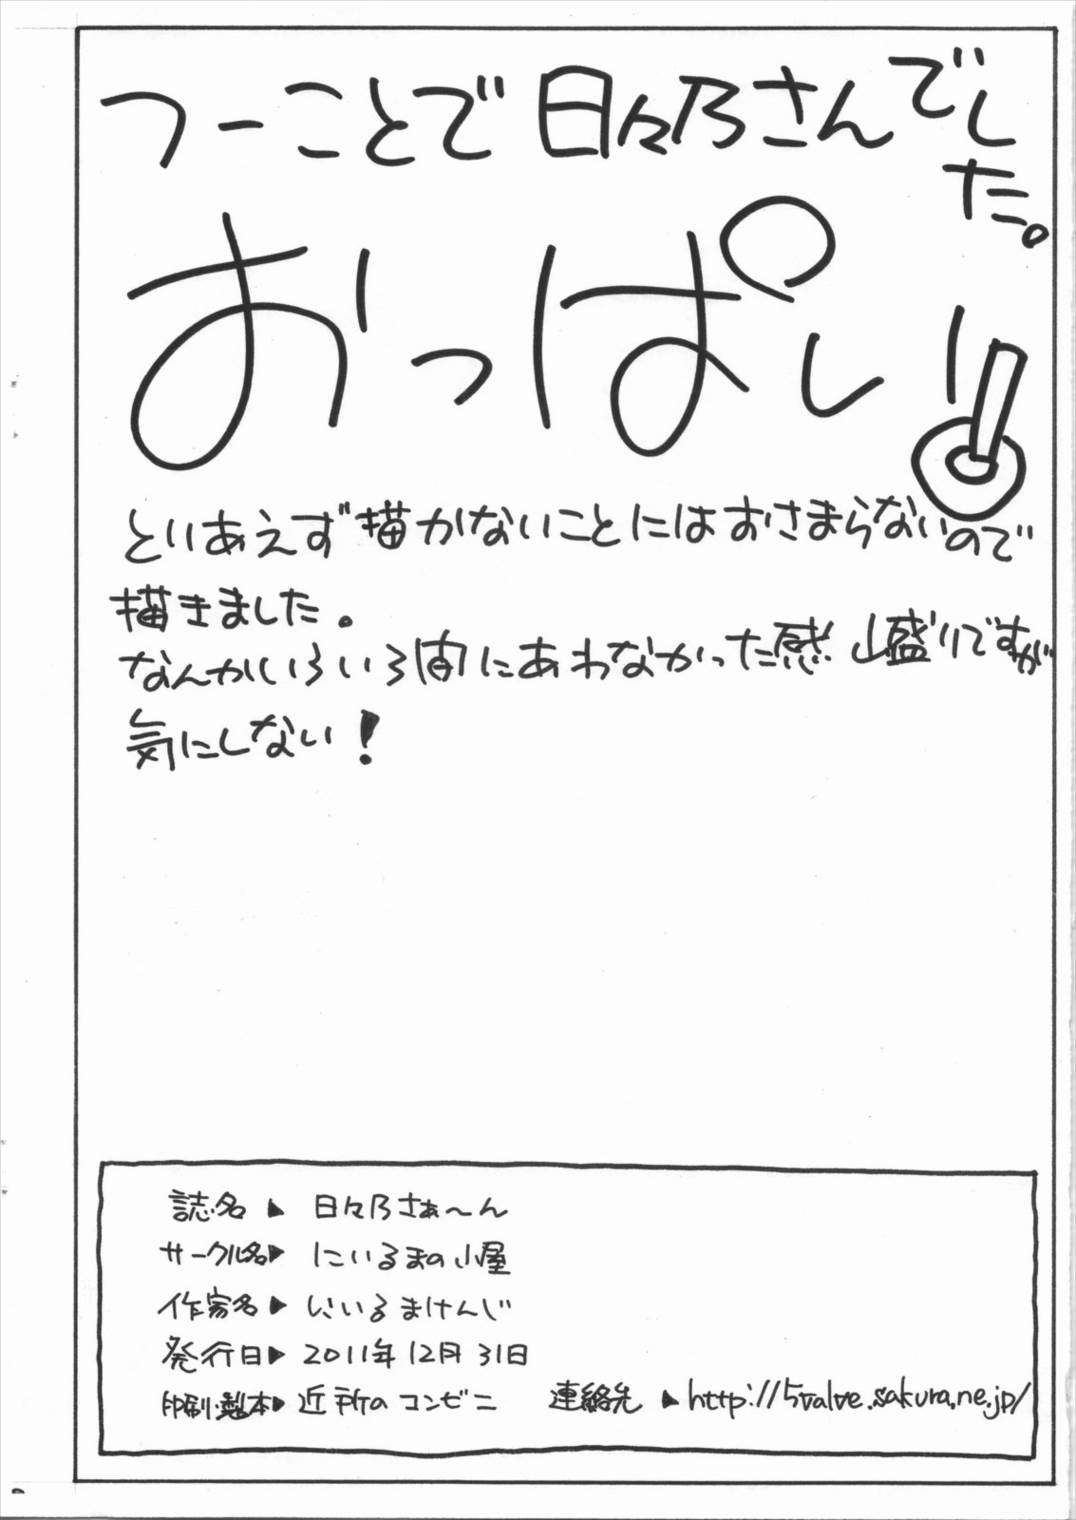 つーことで日々乃さんでした。
おっぱい!!
とりあえず描かないことにはおさまらないので
描きました。
なんかいろいろ間にあわなかった感山盛りですが
気にしない!
誌名▶ 日々乃さぁ～ん
サークル名▶ にいるまの小屋
作家名▶ にいるまけんじ
発行日▶ 2011年12月31日
印刷・製本▶ 近所のコンビニ 連絡先▶ http://5valve.sakura.ne.jp/